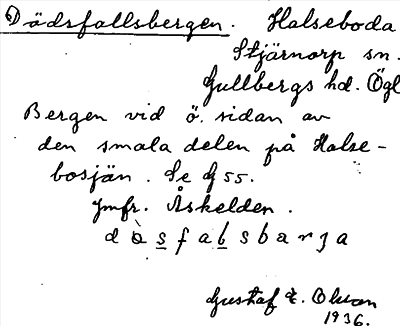 Dödsfallsbergen. Halseboda
Stjärnorp sn.
Gullbergs hd. Ögl
Bergen vid ö. sidan av
den smala delen på Halse-
bosjön. Se G 55.
Jmfr. Åskelden.
d ò s f a l s b a r j a
Gustaf E. Olsson
1936.